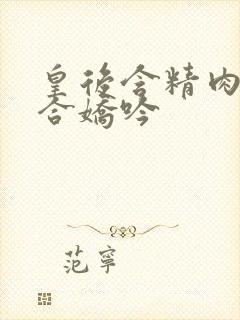 皇後含精肉
合嬌吟
范寧